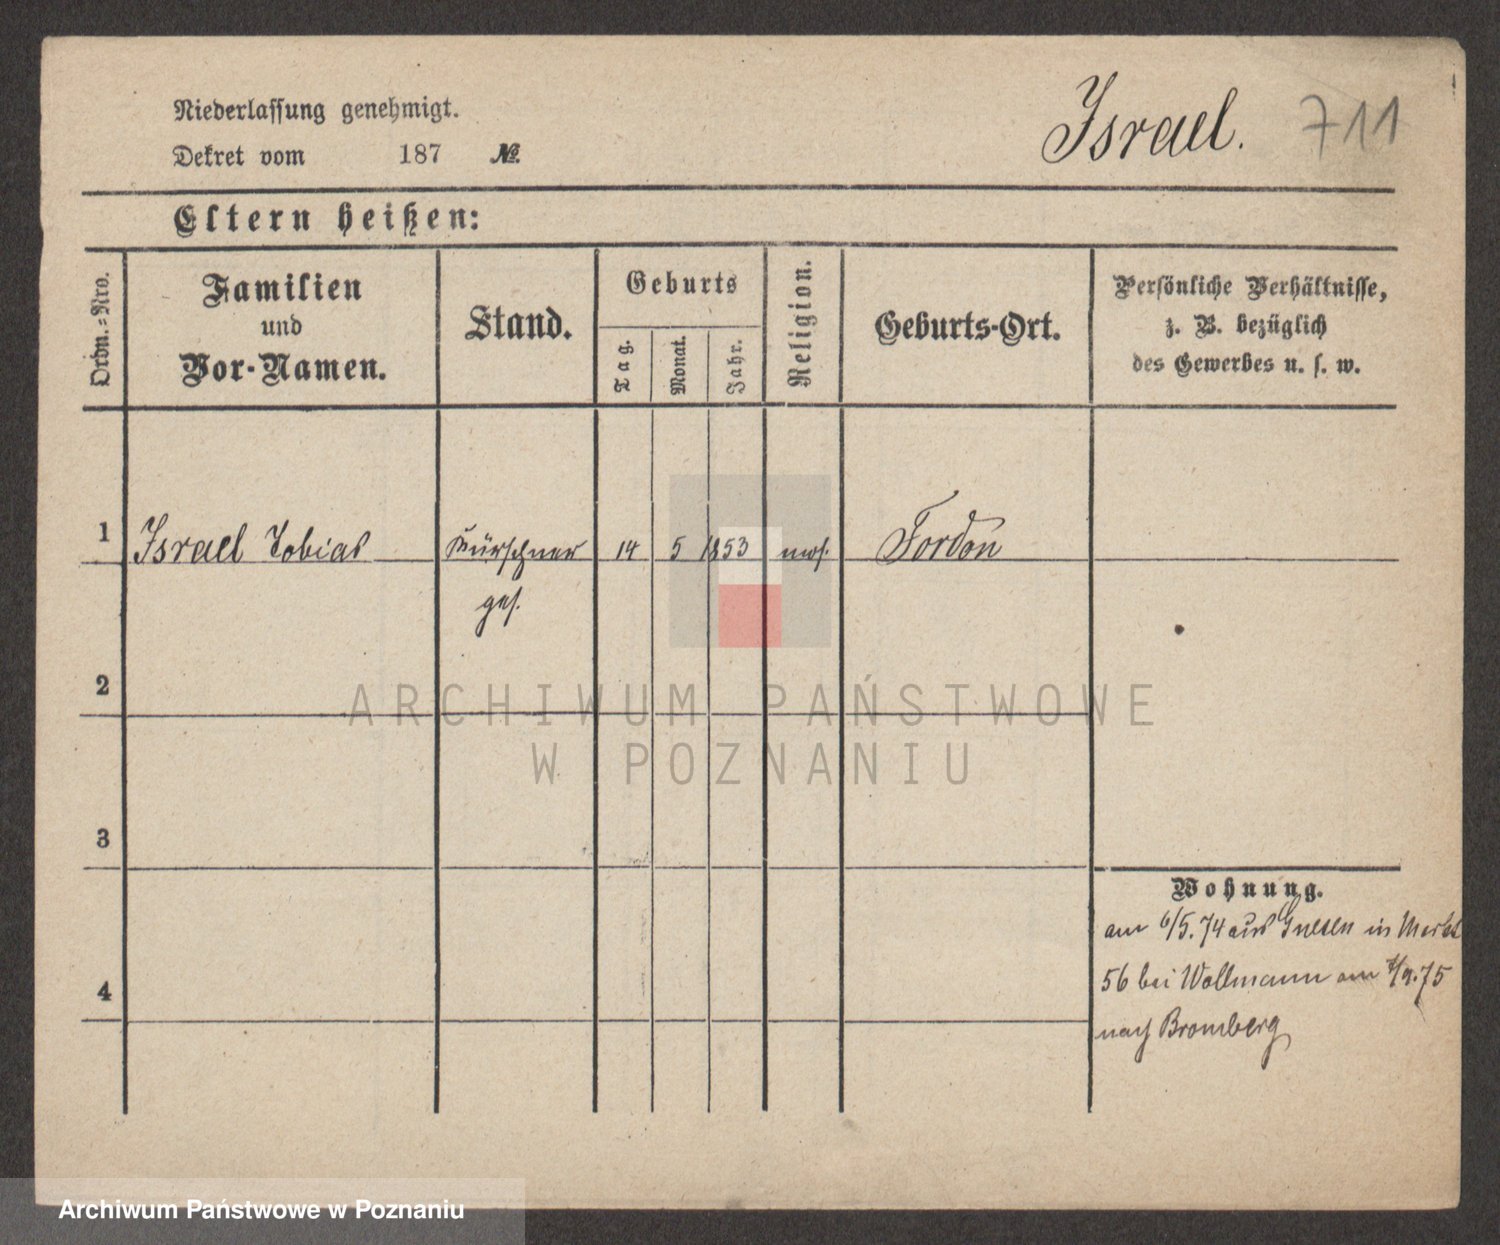 Niederlassung genehmigt.
Dekret vom 187 №
Israel. 711
Eltern heißen:
Ordn.=Nro.
Familien
und
Vor-Namen.
Stand.
Geburts
Tag.
Monat.
Jahr.
Religion.
Geburts-Ort.
Persönliche Verhältnisse,
z. B. bezüglich
des Gewerbes u. s. w.
1 Israel Tobias Kürschner 14 5 1853 mos. Fordon
ges.
2
3
4
Wohnung.
am 6/5. 74 aus Gnesen in Markt
56 bei Wollmann am /9. 75
nach Bromberg
ARCHIWUM PAŃSTWOWE
W POZNANIU
Archiwum Państwowe w Poznaniu